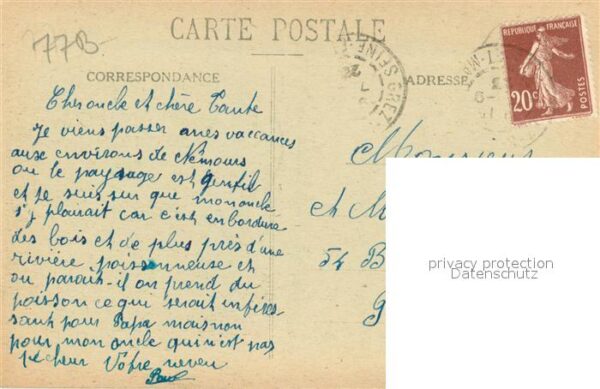 77B
CARTE POSTALE
CORRESPONDANCE
ADRESSE
REPUBLIQUE FRANÇAISE
20c
POSTES
GREZ
SEINE-
Cher oncle et chère Tante
Je viens passer mes vaccances
aux environs de Némours
ou le paysage est gentil
et je suis sur que mon oncle
s'y plairait car c'est en bordure
des bois et de plus près d'une
rivière poissonneuse et
ou parait-il on prend du
poisson ce que serait intéres
sant pour Papa mais non
pour mon oncle qui n'est pas
pêcheur Votre neveu
Paul
Monsieur
et M
54 B
privacy protection
Datenschutz